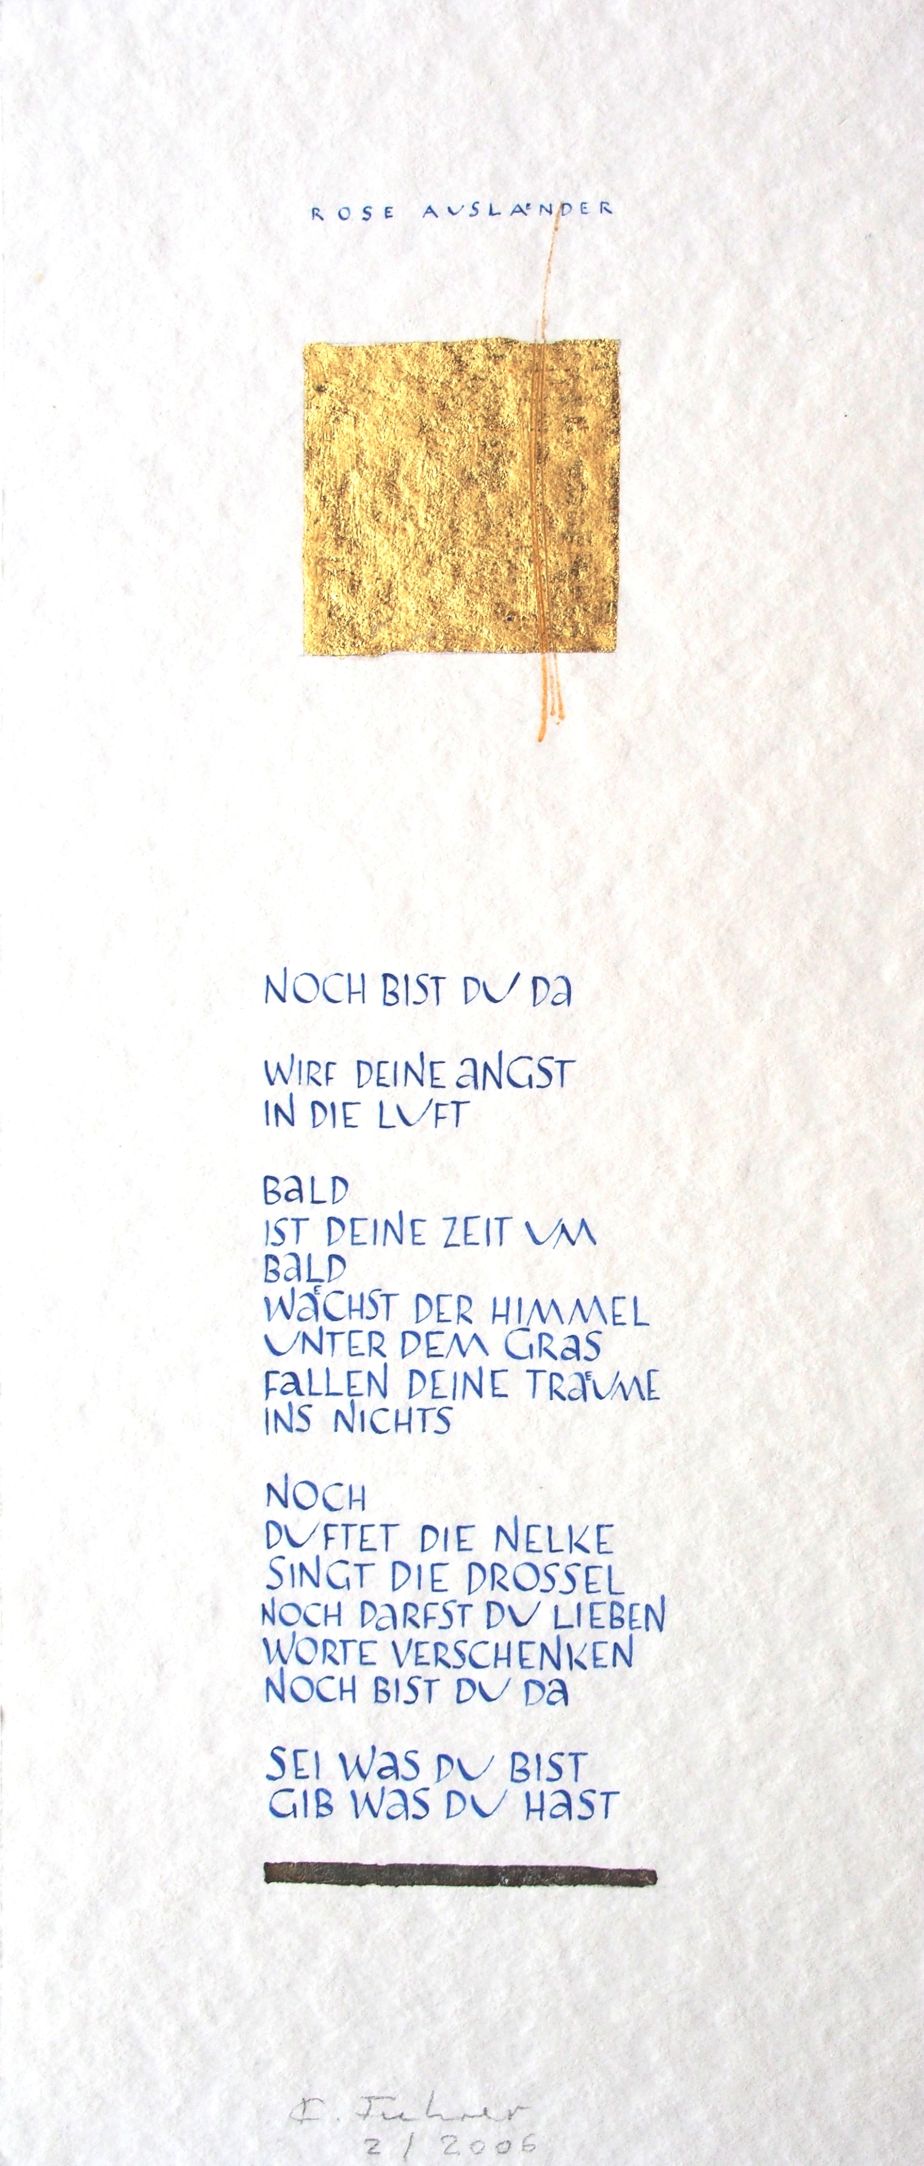 ROSE AUSLAENDER
NOCH BIST DU Da
WIRF DEINE aNGST
IN DIE LUFT
BaLD
IST DEINE ZEIT UM
BaLD
WäCHST DER HIMMEL
UNTER DEM GRaS
FaLLEN DEINE TRäUME
INS NICHTS
NOCH
DUFTET DIE NELKE
SINGT DIE DROSSEL
NOCH DaRFST DU LIEBEN
WORTE VERSCHENKEN
NOCH BIST DU Da
SEI WaS DU BIST
GIB WaS DU HaST
Fuhrer
2/2006